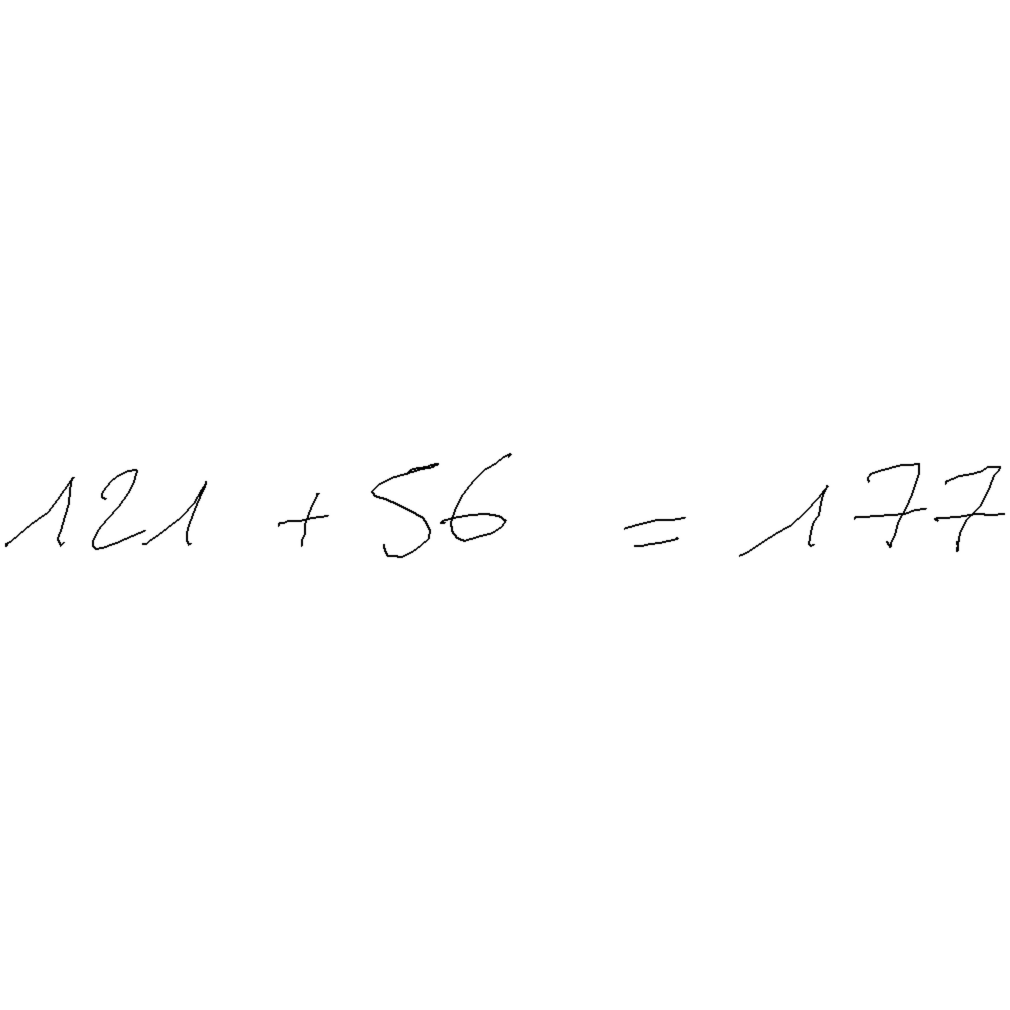 121 + 56 = 177